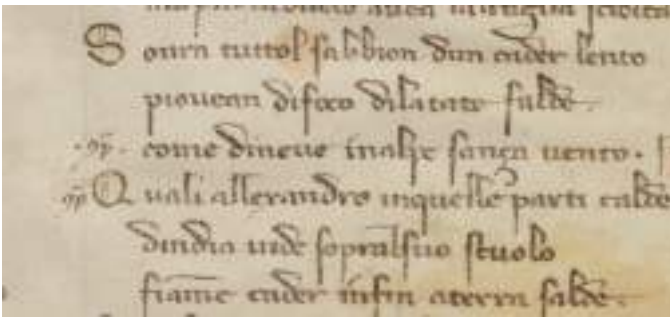 S oura tuttol sabbion dun cader lento
piouean difoco dilatate falde.
come dineue inalpe sança uento.
Q uali allexandro inquelle parti calde
dindia uide sopralsuo stuolo
fiame cader infin aterra salde.